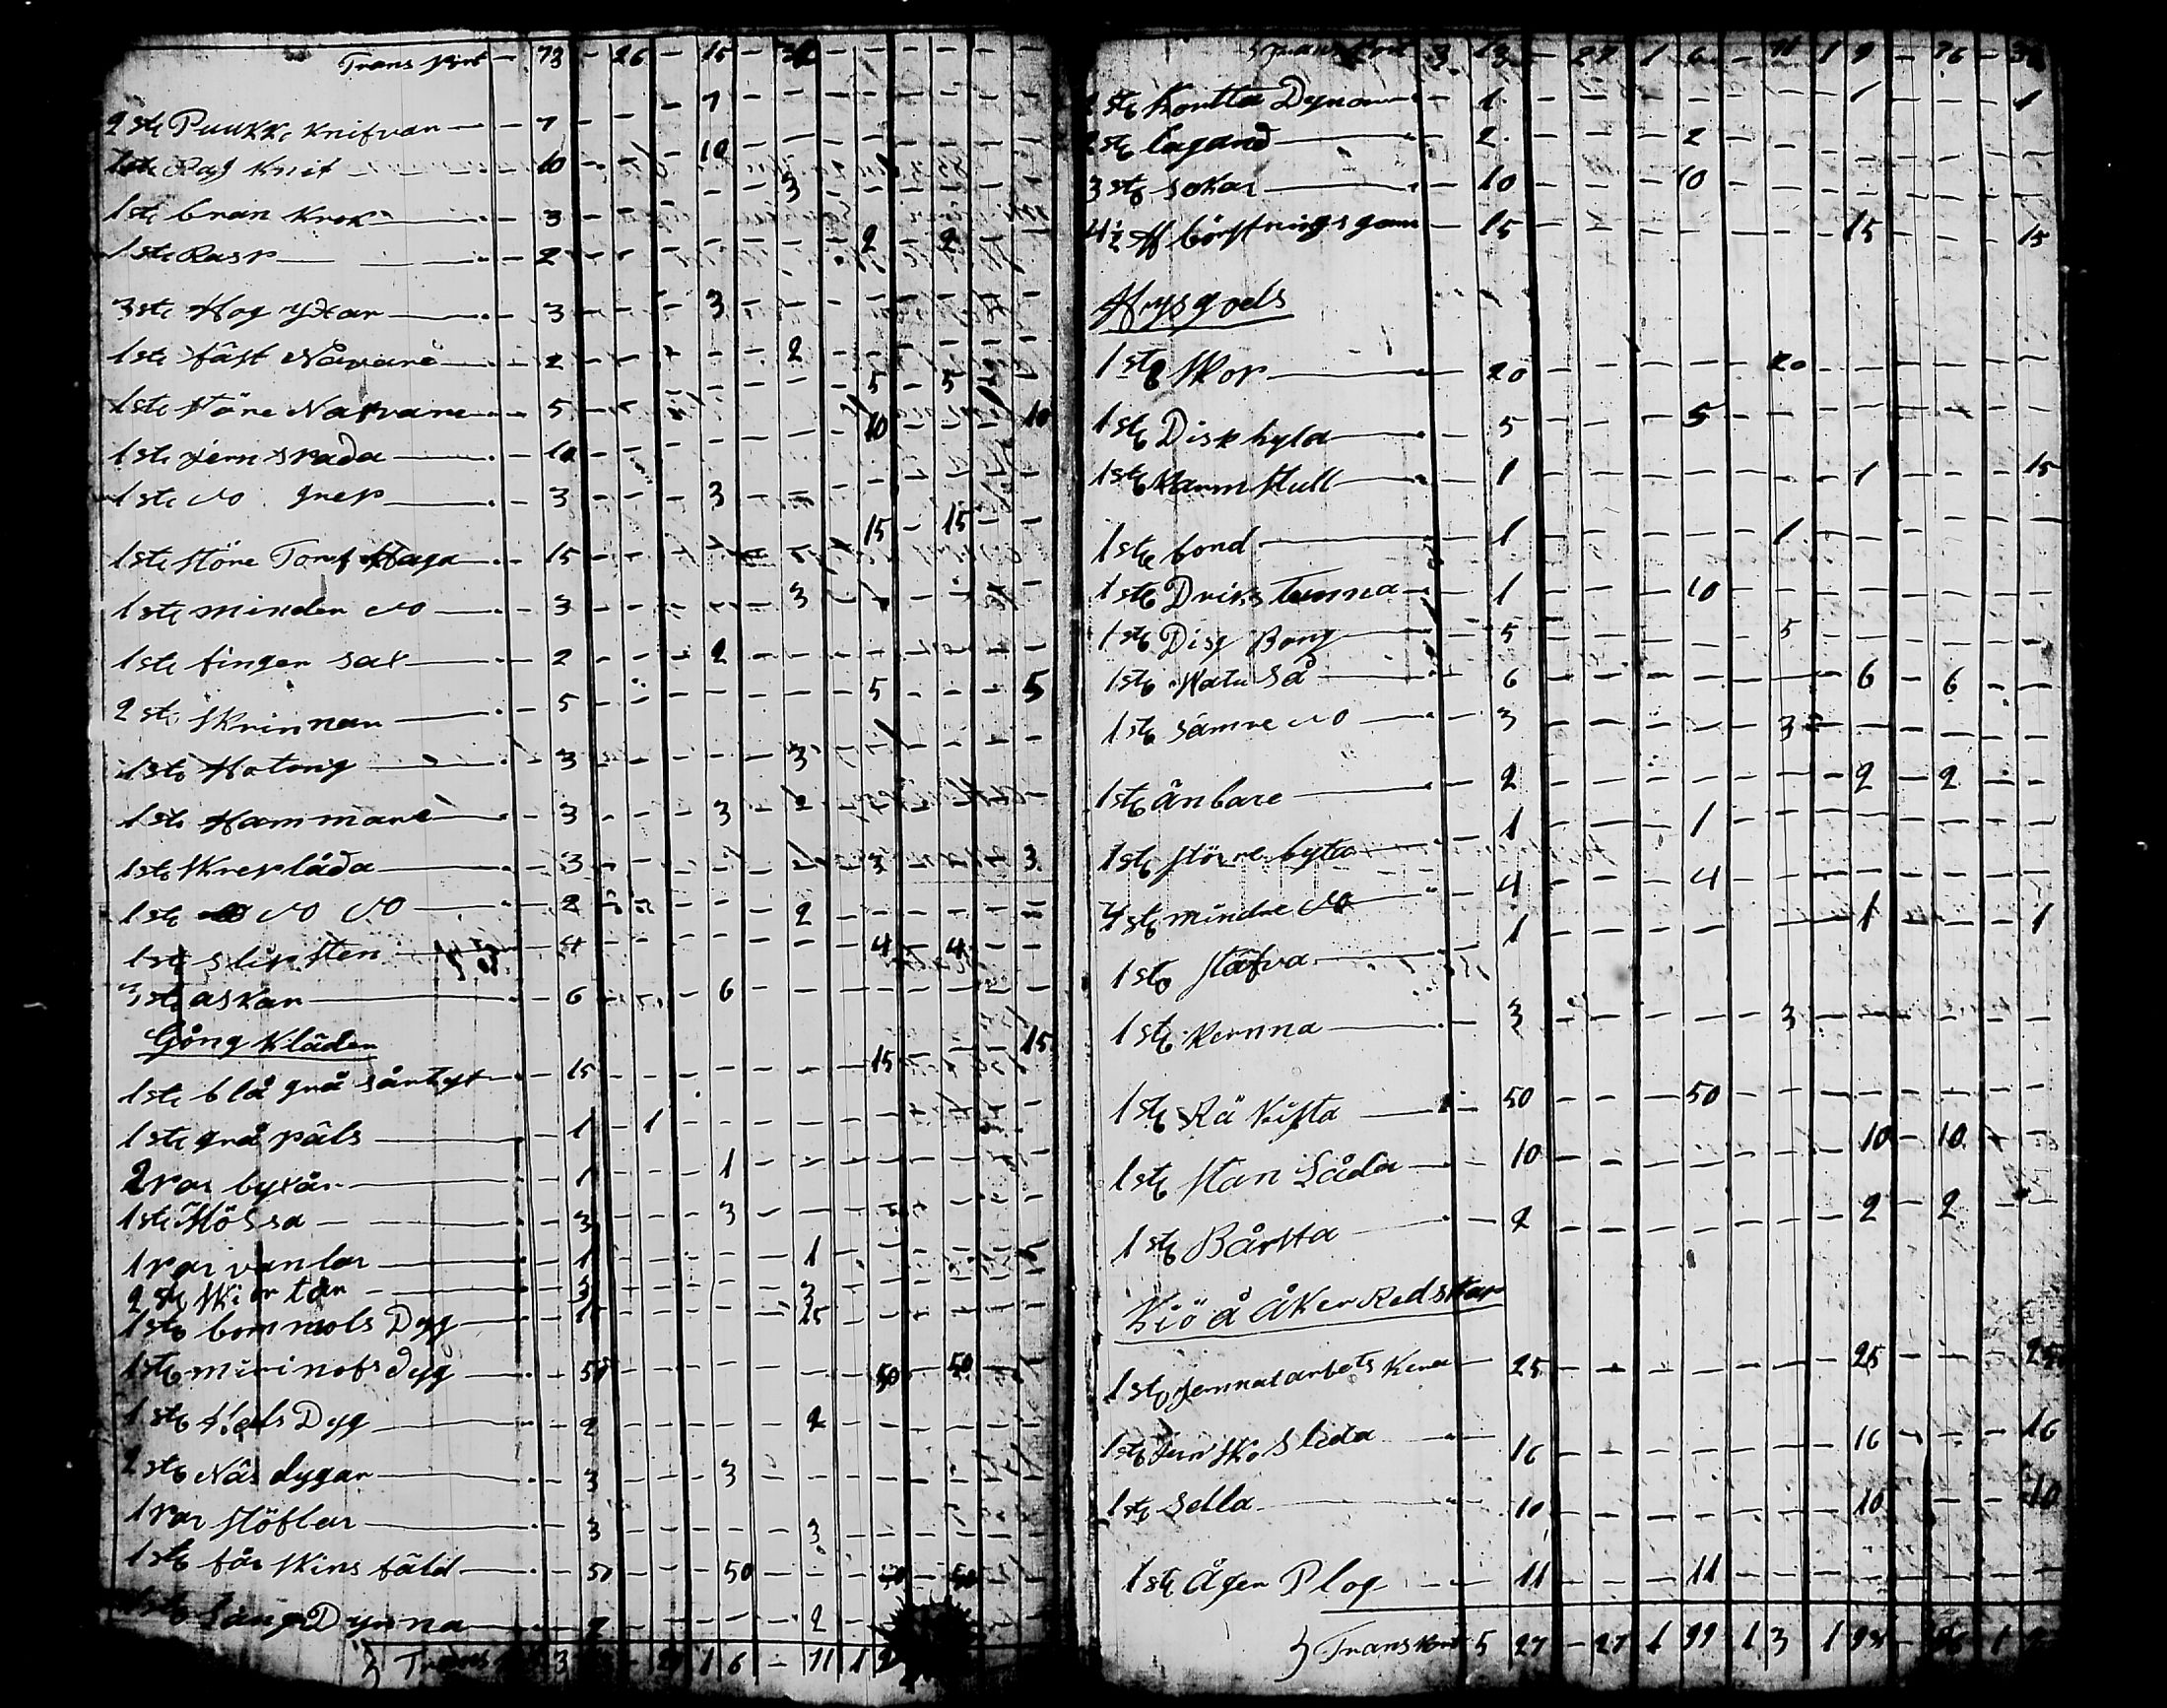 Transport - 73 - 26 - 15 -
2 ste Puukko Knifvar - 7 - - - 7 - - - - - - -
1 ste Knif - 10 - - - 10 - - - - - - -
1 ste bran Krok - 3 - - - - - 3 - - - - -
1 ste Rasp - 2 - - - - - - - 2 - 2 - -
3 ste Hog yxar - 3 - - - 3 - - - - - - -
1 ste fäst Nåvare - 2 - - - - - 2 - - - - -
1 ste störe Nafvare - 5 - - - - - - - 5 - 5 - -
1 ste jern spada - 10 - - - - - - - 10 - - - 10
1 ste do grep - 3 - - - 3 - - - - - - -
1 ste störe Torf Haga - 15 - - - - - - - 15 - 15 - -
1 ste minder do - 3 - - - - - 3 - - - - -
1 ste finger sax - 2 - - - 2 - - - - - - -
2 ste skrinnar - 5 - - - - - - - 5 - - - 5
1 ste Hotong - 3 - - - - - 3 - - - - -
1 ste Hammare - 3 - - - 3 - - - - - - -
1 ste Skreplåda - 3 - - - - - - - 3 - - - 3
1 ste do do - 2 - - - - - 2 - - - - -
1 ste slipsten - 4 - - - - - - - 4 - 4 - -
3 ste askar - 6 - - - 6 - - - - - - -
Gång Kläder
1 ste blå grå sårtyt - 15 - - - - - - - 15 - - - 15
1 ste grå päls - 1 - 1 - - - - - - - - -
2 par byxår - 1 - - - 1 - - - - - - -
1 ste Mössa - 3 - - - 3 - - - - - - -
1 par vantar - 1 - - - - - 1 - - - - -
2 ste Skiortor - 3 - - - - - 3 - - - - -
1 ste bommols Dyg - - - - - - 25 - - - - -
1 ste mirinots dyg - 50 - - - - - - - 50 - 50 - -
1 ste Hals Dyg - 2 - - - - - 2 - - - - -
2 ste Näsdygar - 3 - - - 3 - - - - - - -
1 par Stöflar - 3 - - - - - 3 - - - - -
1 ste får Skins fäld - 50 - - - 50 - - -
1 ste säng Dynna - 2 - - - - - 2 -
3 1 6 - 71 1
Transport 3 13 - 27 1 6 - 71 1 9 - 76 -
2 ste Dynor - 1 - - - - - - - 1 - - - 1
2 ste Lagand - 2 - - - 2 - - - - - - -
3 ste sokar - 10 - - - 10 - - - - - - -
4½ börstningsgarn - 15 - - - - - - - 15 - - - 15
Hysgods
1 ste Skop - 20 - - - - - 20 - - - - -
1 ste Disk hyla - 5 - - - 5 - - - - - - -
1 ste Karmstull - 1 - - - - - - - 1 - - - 15
1 ste bord - 1 - - - - - 1 - - - - -
1 ste Driks tunna - 1 - - - 10 - - - - - - -
1 ste Disg Bong - 5 - - - - - 5 - - - - -
1 ste Watu Så - 6 - - - - - - - 6 - 6 - -
1 ste sämre do - 3 - - - - - 3 - - - - -
1 ste änbare - 2 - - - - - - - 2 - 2 - -
1 ste större byta - 1 - - - 1 - - - - - - -
4 ste mindre do - 4 - - - 4 - - - - - - -
1 ste stäfva - 1 - - - - - - - 1 - - - 1
1 ste kernna - 3 - - - - - 3 - - - - -
1 ste Rä Kista - 50 - - - 50 - - - - - - -
1 ste stan Låda - 10 - - - - - - - 10 - 10 - -
1 ste Bårsta - 2 - - - - - - - 2 - 2 - -
Kiö å Åker Redskap
1 ste jernnat arbets Kera - 25 - - - - - - - 25 - - - 25
1 ste jern sko sleda - 16 - - - - - - - 16 - - - 16
1 ste Sella - 10 - - - - - - - 10 - - - 10
1 ste Åger Plog - 11 - - - 11 - - - - - - -
Transport 5 27 - 27 1 99 1 3 1